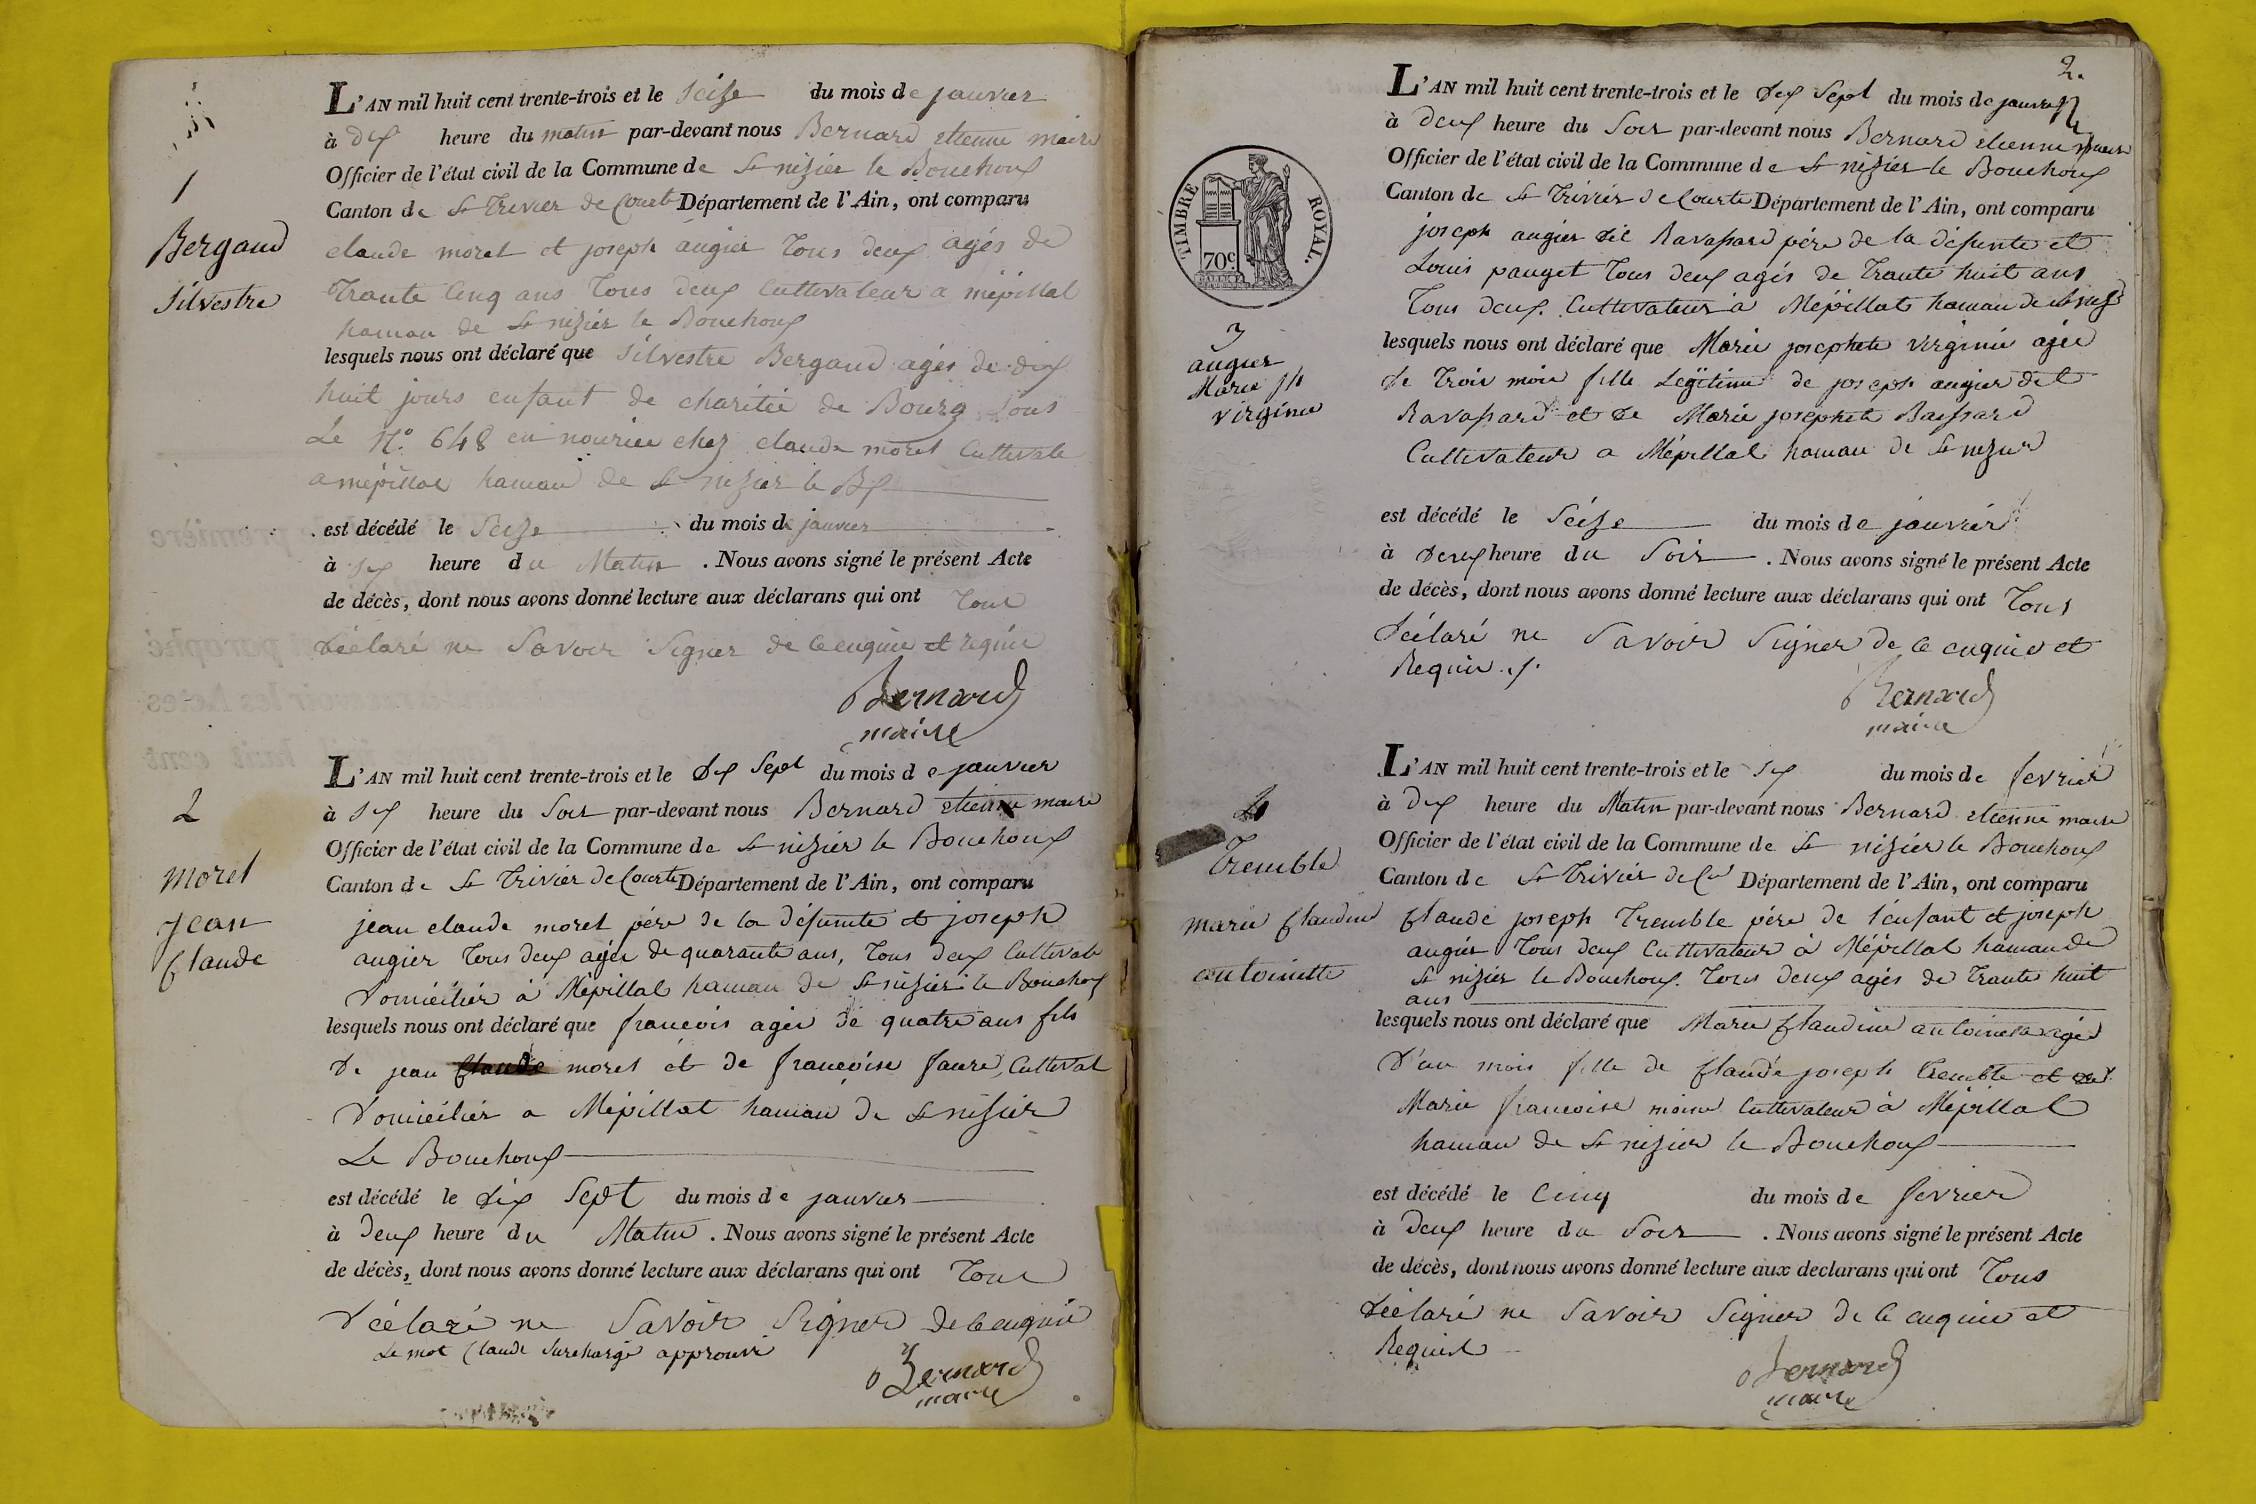 1
Bergaud
Silvestre
L'AN mil huit cent trente-trois et le Seise du mois de janvier
à dix heure du matin par-devant nous Bernard etienne maire
Officier de l'état civil de la Commune de St nizier le Bouchoux
Canton de St Trivier de Court Département de l'Ain, ont comparu
claude moret et joseph augier Tous deux agés de
Trante Cinq ans Tous deux Cultivateur a mépillat
hamau de St nizier le Bouchoux
lesquels nous ont déclaré que Silvestre Bergaud agés de dix
huit jours enfant de charitée de Bourg Sous
Le N.° 648 en nourice chez claude moret Cultivate
a mépillat hamau de St nizier le Bx
est décédé le Seize du mois de janvier
à six heure du Matin . Nous avons signé le présent Acte
de décès, dont nous avons donné lecture aux déclarans qui ont Tous
déclaré ne Savoir Signer de ce enquie et requie
Bernard
maire
2
moret
jean
Claude
L'AN mil huit cent trente-trois et le dix Sept du mois de janvier
à six heure du Soir par-devant nous Bernard etienne maire
Officier de l'état civil de la Commune de St nizier le Bouchoux
Canton de St Trivier de Courte Département de l'Ain, ont comparu
jean claude moret pére de la défunte et joseph
augier Tous deux agés de quarante ans, Tous deux Cultivate
Domicilier à Mépillat hamau de St nizier le Bouchox
lesquels nous ont déclaré que francois agée de quatre ans fils
De jean Claude moret et de francoise faure, Cultivat
Domicilier a Mépillat hamau de St nisier
Le Bouchoux
est décédé le dix Sept du mois de janvier
à deux heure du Matin . Nous avons signé le présent Acte
de décès, dont nous avons donné lecture aux déclarans qui ont Tous
Déclaré ne Savoir Signer de ce enquie
Le mot Claude Surchargé approuvé
Bernard
maire
2.
TIMBRE ROYAL.
70c
3
augier
Marie jh
virginie
L'AN mil huit cent trente-trois et le dix Sept du mois de janvier
à deux heure du Soir par-devant nous Bernard etienne maire
Officier de l'état civil de la Commune de St nizier le Bouchoux
Canton de St Trivier de Courte Département de l'Ain, ont comparu
joseph augier dit Ravassard pére de la défunte et
Louis pauget Tous deux agés de Trante huit ans
Tous deux Cultivateur à Mépillat hamau de
lesquels nous ont déclaré que Marie josephete virginie agée
de Trois mois fille Legitime de joseph augier dit
Ravassard et de Marie josephete Baissard
Cultivateur a Mépillat hamau de St nizier
est décédé le Seise du mois de janvier
à deux heure du Soir . Nous avons signé le présent Acte
de décès, dont nous avons donné lecture aux déclarans qui ont Tous
déclaré ne Savoir Signer de ce enquie et
Requie
Bernard
maire
4
Tremble
marie Claudine
antoinette
L'AN mil huit cent trente-trois et le six du mois de fevrier
à dix heure du Matin par-devant nous Bernard etienne maire
Officier de l'état civil de la Commune de St nizier le Bouchoux
Canton de St Trivier de Département de l'Ain, ont comparu
Claude joseph Tremble pére de l'enfant et joseph
augier Tous deux Cultivateur à Mépillat hamau de
St nizier le Bouchoux. Tous deux agés de Trante huit
ans
lesquels nous ont déclaré que Marie Claudine antoinete agée
D'un mois fille de Claude joseph Tremble et de
Marie francoise moine Cultivateur à Mépillat
hamau de St nizier le Bouchoux
est décédé le Cinq du mois de fevrier
à deux heure du Soir . Nous avons signé le présent Acte
de décès, dont nous avons donné lecture aux declarans qui ont Tous
Déclaré ne Savoir Signer de ce enquie et
Requist
Bernard
maire